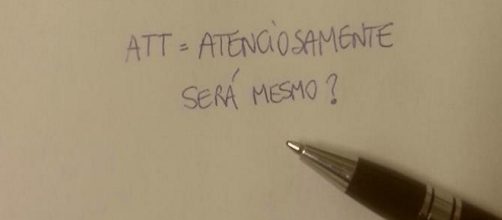 ATT = ATENCIOSAMENTE
SERÁ MESMO?